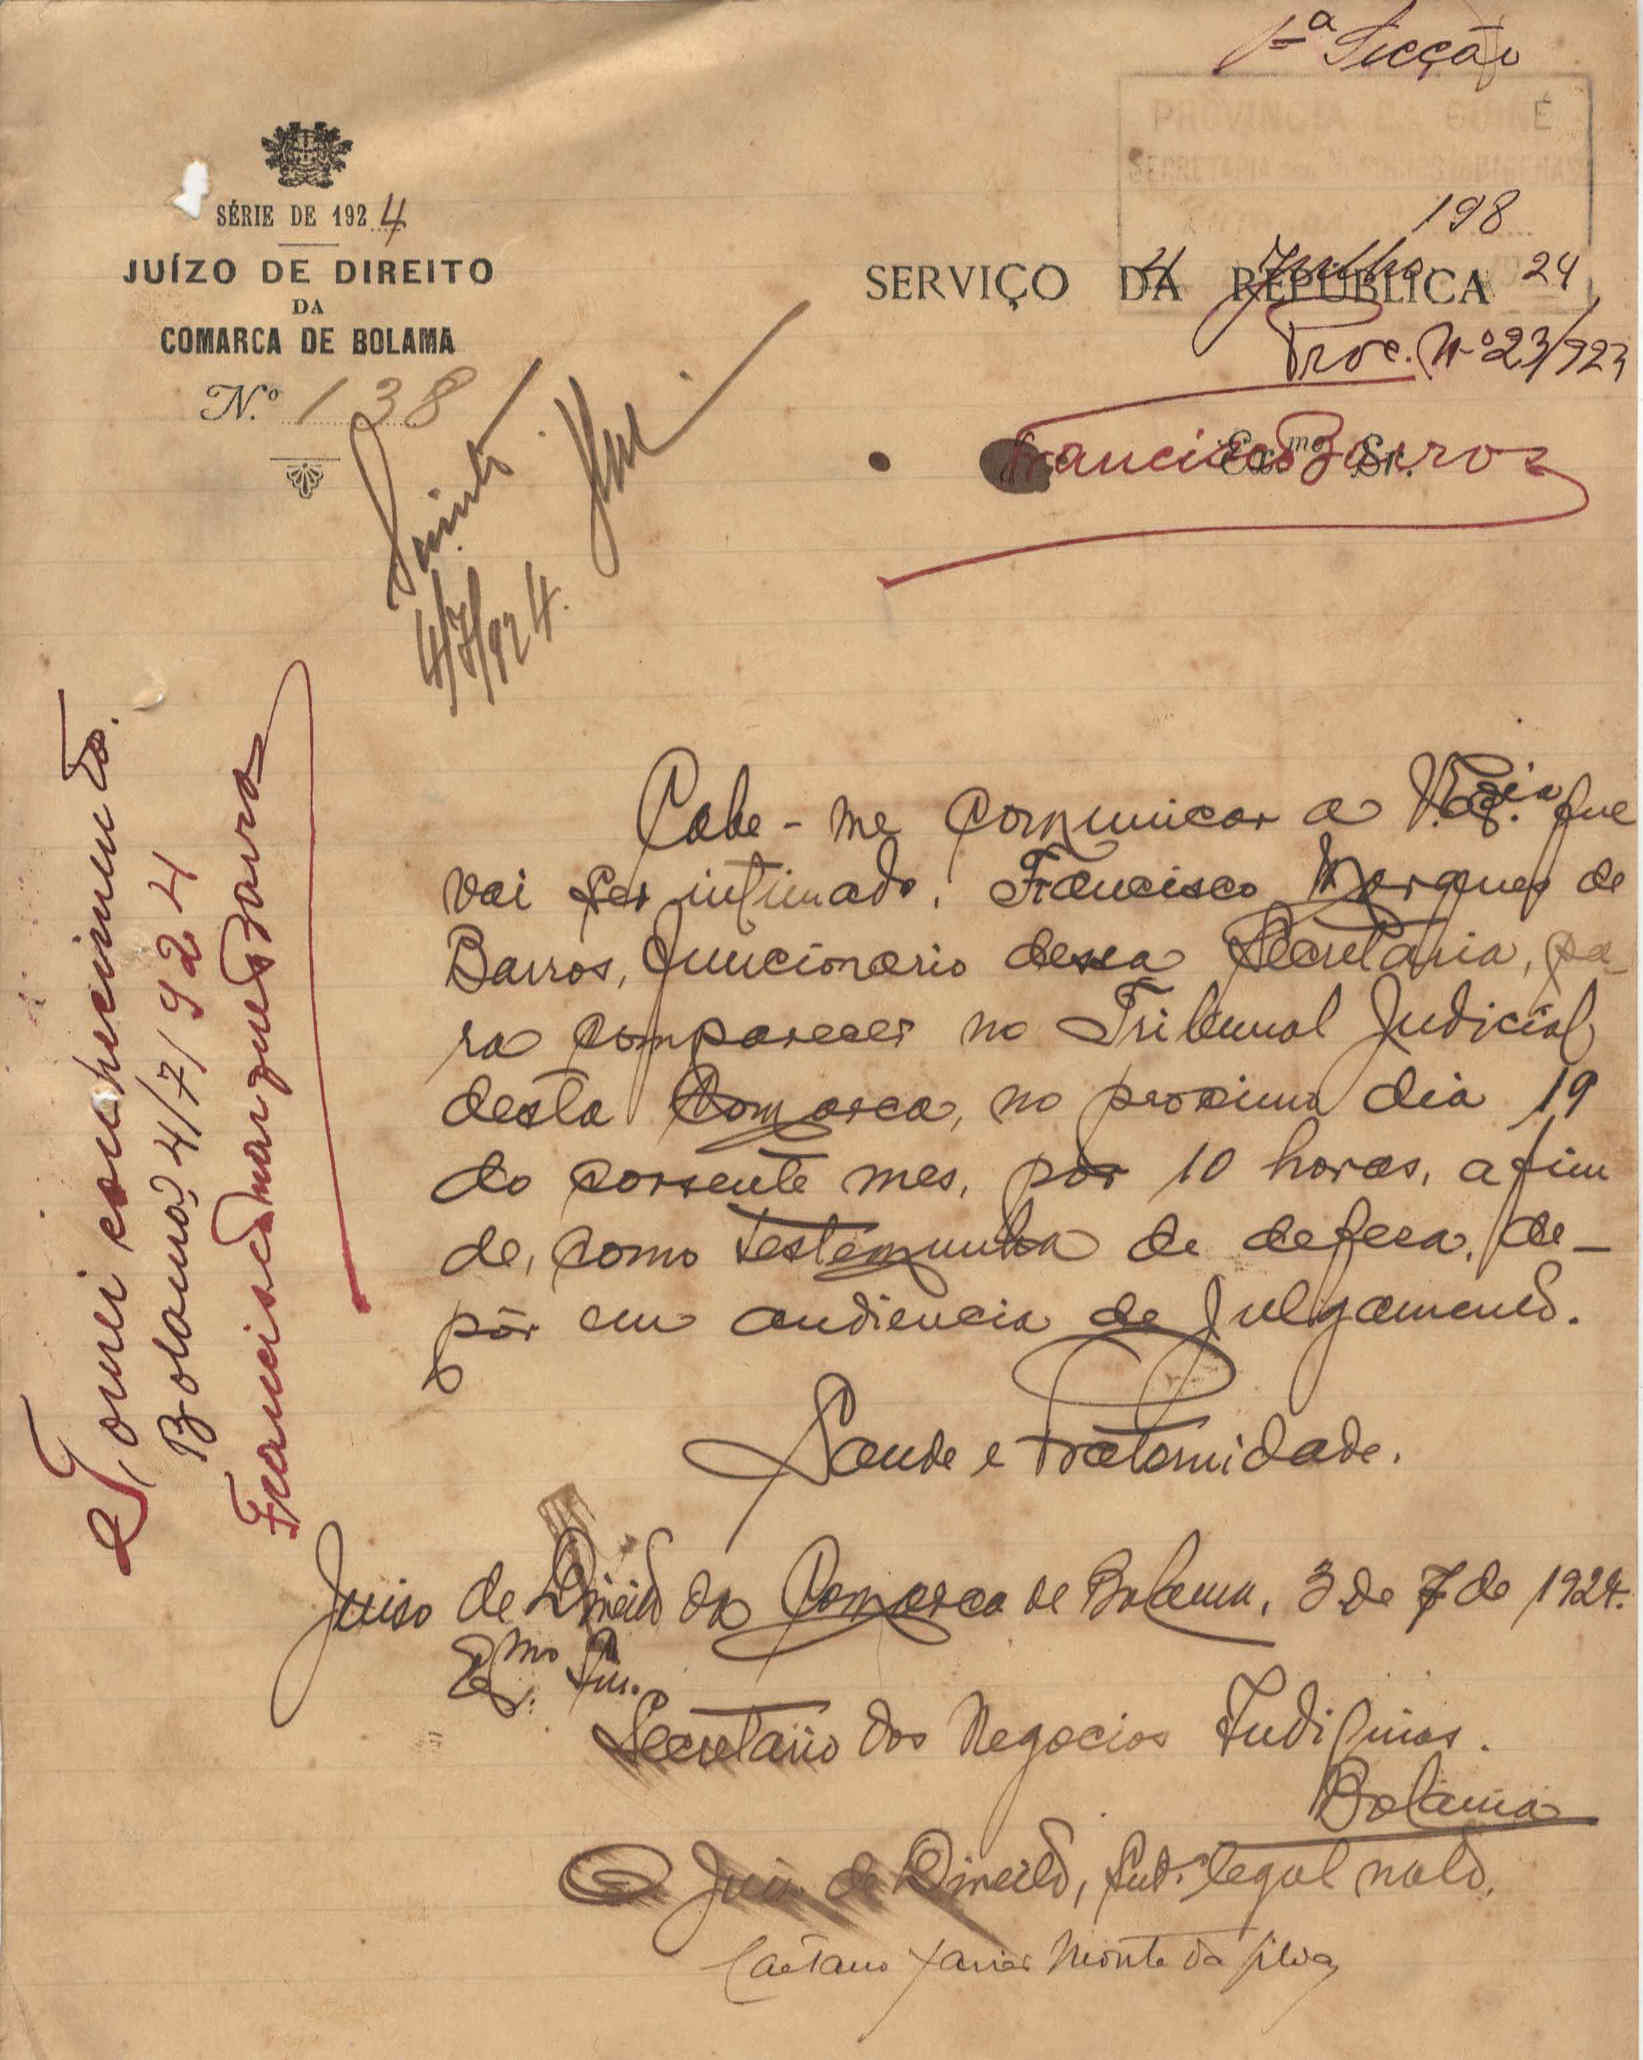 1ª Secção
PROVINCIA DA GUINÉ
SÉRIE DE 1924
JUÍZO DE DIREITO
DA
COMARCA DE BOLAMA
N.º 138
198
SERVIÇO DA REPUBLICA
4 Julho 24
Proc. Nº 23/923
Francisco Barros
Exmo Sr.
4/7/924.
Cabe-me comunicar a V. Exª. que
vai ser intimado, Francisco Marques de
Barros, funcionario dessa Secretaria, pa-
ra comparecer no Tribunal Judicial
desta Comarca, no proximo dia 19
do corrente mes, por 10 horas, a fim
de, como testemunha de defesa, de-
pôr em audiencia de julgamento.
Saude e Fraternidade.
Juiso de Direito da Comarca de Bolama, 3 de 7 de 1924.
Exmo Snr.
Secretario dos Negocios Indiginas.
Bolama
O Juiz de Direito, Subº legal nato,
Caetano Xavier Monte da Silva
Tomei conhecimento.
Bolama 4/7/924
Francisco Marques Barros